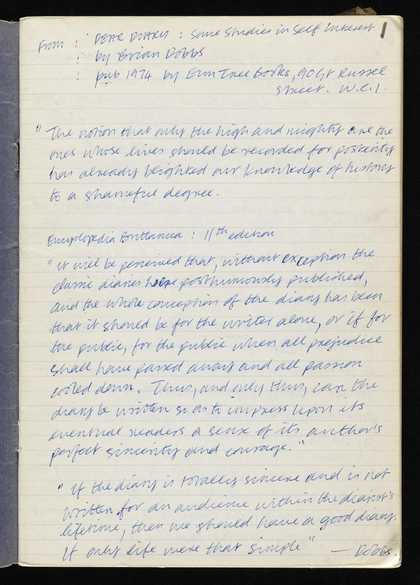 1
From : 'DEAR DIARY : Some Studies in Self Interest
: by Brian Dobbs
: pub 1974 by Elm Tree Books, 90 Gt Russel
Street. W.C.1.
"The notion that only the high and mighty are the
ones whose lives should be recorded for posterity
has already blighted our knowledge of history
to a shameful degree.
Encyclopedia Brittanica : 11th edition
"it will be perceived that, without exception the
classic diaries were posthumously published,
and the whole conception of the diary has been
that it should be for the writer alone, or if for
the public, for the public when all prejudice
shall have passed away and all passion
cooled down. Thus, and only thus, can the
diary be written so as to impress upon its
eventual readers a sense of its author's
perfect sincerity and courage."
"If the diary is totally sincere and is not
written for an audience within the diarist's
lifetime, then we should have a good diary.
If only life were that simple" — Dobbs.